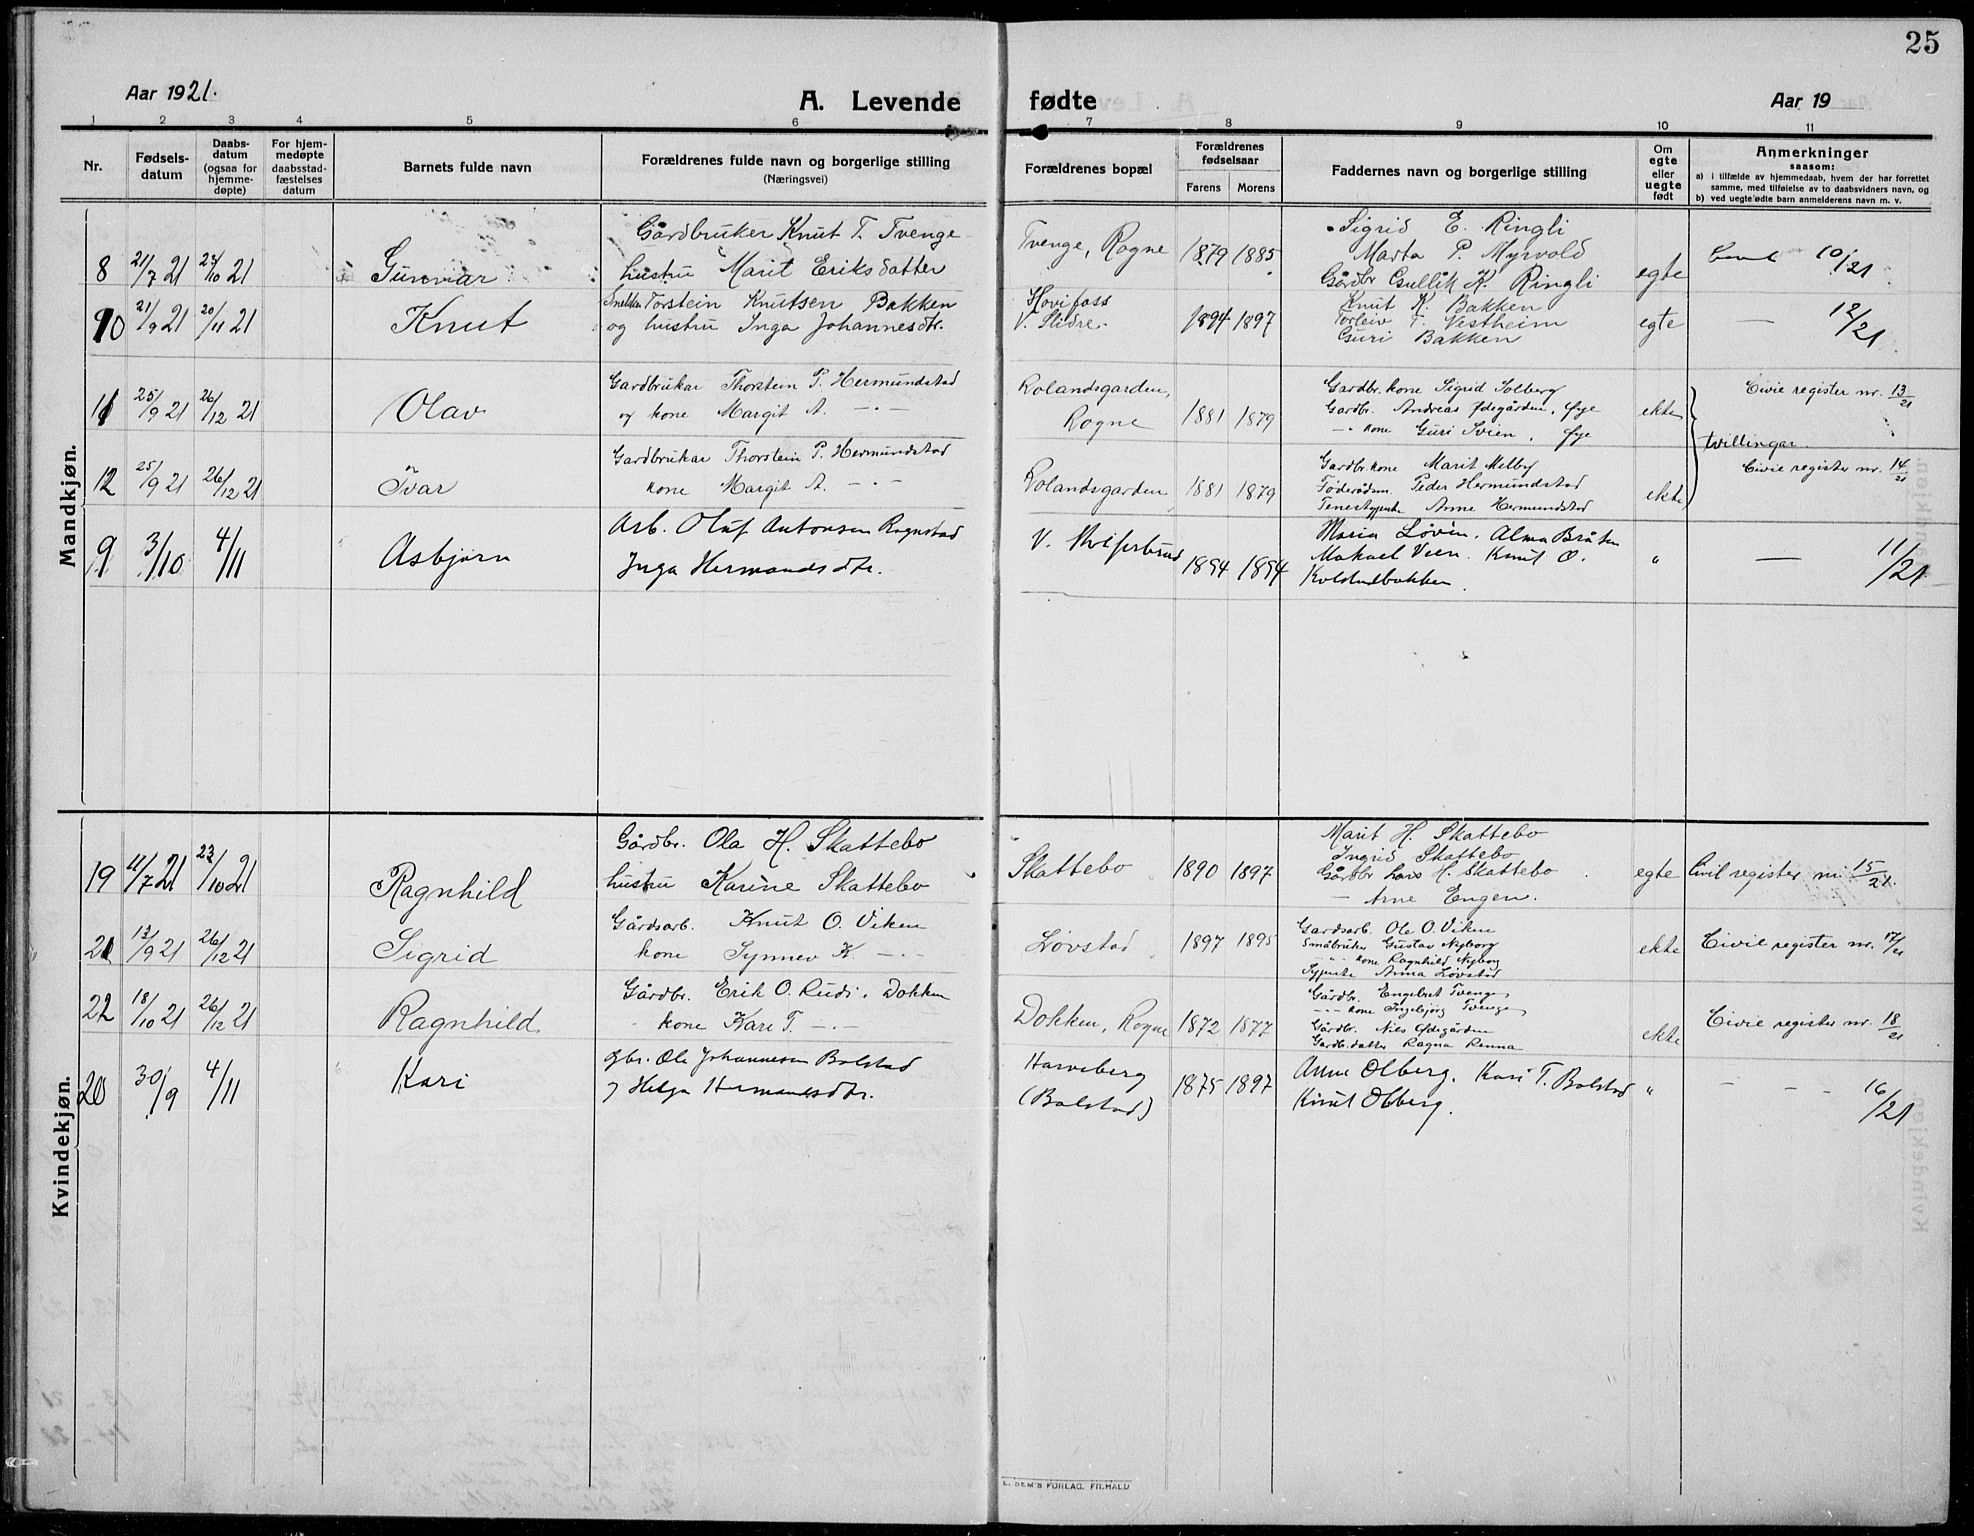 25
Aar 1921.
A. Levende fødte
Aar 19
1 2 3 4 5 6 7 8 9 10 11
Nr.
Fødsels-
datum
Daabs-
datum
(ogsaa for
hjemme-
døpte)
For hjem-
medøpte
daabsstad-
fæstelses
datum
Barnets fulde navn
Forældrenes fulde navn og borgerlige stilling
(Næringsvei)
Forældrenes bopæl
Forældrenes
fødselsaar
Farens Morens
Faddernes navn og borgerlige stilling
Om
egte
eller
uegte
født
Anmerkninger
saasom:
a) i tilfælde av hjemmedaab, hvem der har forrettet
samme, med tilføielse av to daabsvidners navn, og
b) ved uegte fødte barn anmelderens navn m. v.
Mandkjøn.
8 21/7 21 23/10 21 Gunvar
Gårdbruker Knut T. Tvenge
hustru Marit Eriksdatter
Tvenge, Rogne 1879 1885
Sigrid E. Ringli
Marta P. Myrvold
Gårdbr Gullik K. Ringli
egte 10/21
10 21/9 21 20/11 21 Knut
Snekker Torstein Knutsen Bakken
og hustru Inga Johannesdtr.
Hovifoss
V. Slidre. 1894 1897
Knut K. Bakken
Torleiv T. Vestheim
Guri Bakken
egte — 12/21
11 25/9 21 26/12 21 Olav
Gardbrukar Thorstein P. Hermundstad
og kone Margit A. — " —
Rolandsgarden,
Rogne 1881 1879
Gardbr. kone Sigrid Solberg
Gardbr. Andreas Ødegården, Øye
— " kone Guri Svien, Øye
ekte
Civie register nr. 13/21
tvillingar.
12 25/9 21 26/12 21 Ivar
Gardbrukar Thorstein P. Hermundstad
kone Margit A. — " —
Rolandsgarden 1881 1879
Gardbr. kone Marit Melby
Føderådsm. Peder Hermundstad
Anne Hermundstad
ekte
Civie register nr. 14/21
9 3/10 4/11 Asbjørn
Arb. Oluf Antonsen Rognstad
Inga Hermandsdtr.
V. 1894 1894
Maria Løvin. Alma Bråten
Knut O.
" — 11/21
Kvindekjøn.
19 11/7 21 23/10 21 Ragnhild
Gårdbr. Ola H. Skattebo
hustru Karine Skattebo
Skattebo 1890 1897
Marit H. Skattebo
Ingrid Skattebo
Gårdbr Lars H. Skattebo
— Arne Engen.
egte Civil register nr. 15/21
21 13/9 21 26/12 21 Sigrid
Gårdsarb. Knut O. Viken
kone Synnev K. — " —
Løvstad 1897 1895
Gardsarb. Ole O. Viken
Småbruker Gustav Nyborg
— " kone Ragnhild Nyborg
Anna Løvstad
ekte Civie register nr. 17/21
22 18/10 21 26/12 21 Ragnhild
Gårdbr. Erik O. Rudi, Dokken
kone Kari T. — " —
Dokken, Rogne 1872 1877
Gårdbr. Engebret Tvenge,
— " kone Ingebjørg Tvenge,
Gårdbr. Nils Ødegården
Gardbr.datter Ragna Renna
ekte Civie register nr. 18/21
20 30/9 4/11 Kari
gbr. Ole Johannesen Bolstad
og Helga Hermandsdtr.
(Bolstad) 1875 1897
Anne Olberg. Kari T. Bolstad
Knut Olberg.
" — — 16/21
E. SEM'S FORLAG. FR.HALD